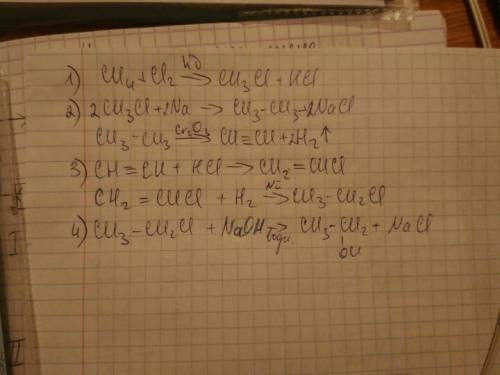 1) CH₄ + Cl₂ →(hν) CH₃Cl + HCl
2) 2CH₃Cl + 2Na → CH₃-CH₃ + 2NaCl
CH₃-CH₃ →(Cr₂O₃) CH≡CH + 2H₂↑
3) CH≡CH + HCl → CH₂=CHCl
CH₂=CHCl + H₂ →(Ni) CH₃-CH₂Cl
4) CH₃-CH₂Cl + NaOH →(водн) CH₃-CH₂ + NaCl
OH